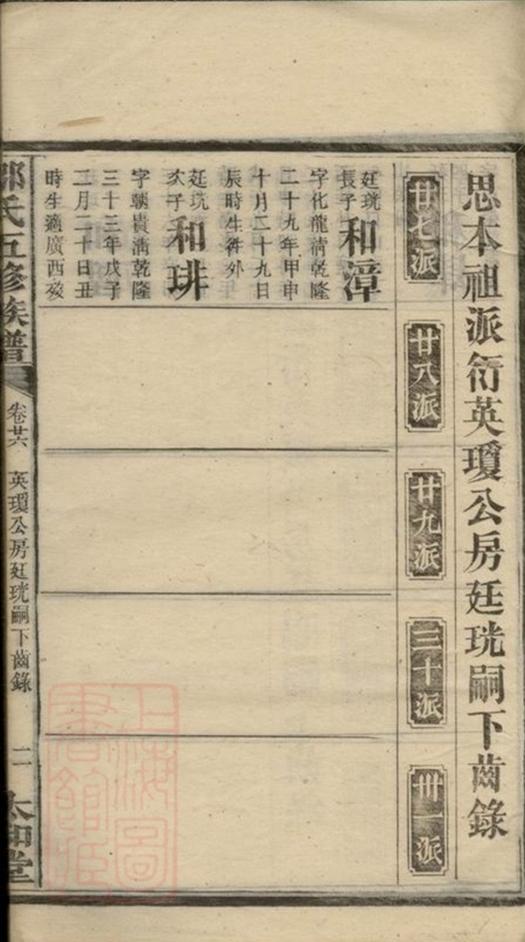 思本祖派衍英瓊公房廷珖嗣下齒錄
廿七派
廿八派
廿九派
三十派
卅一派
廷珖
長子
和漳
字化龍清乾隆
二十九年甲申
十月二十九日
辰時生徃外
廷珖
次子
和琲
字朝貴清乾隆
三十三年戊子
二月二十日丑
時生適廣西歿
氏五修族譜
卷廿六
英瓊公房廷珖嗣下齒錄
二
太和堂
上海圖
書館藏